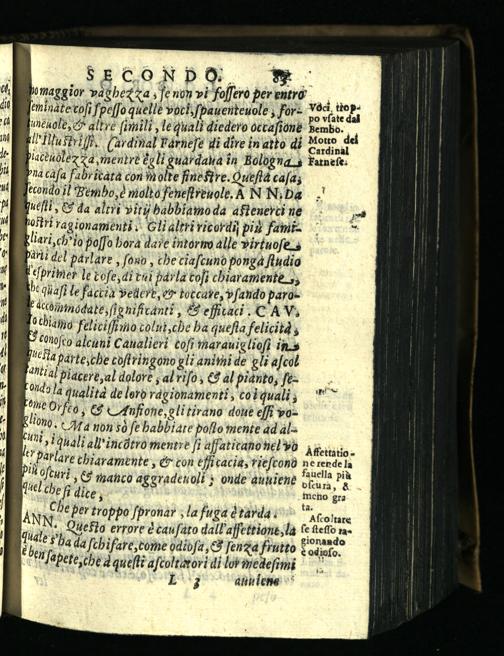 SECONDO. 83
no maggior vaghezza, se non vi fossero per entro
seminate così spesso quelle voci, spauenteuole, for-
tuneuole, & altre simili, le quali diedero occasione
all'Illustriss. Cardinal Farnese di dire in atto di
piaceuolezza, mentre egli guardaua in Bologna
vna casa fabricata con molte finestre. Questa casa,
secondo il Bembo, è molto fenestreuole. ANN. Da
questi, & da altri vitij habbiamo da astenerci ne
nostri ragionamenti. Gli altri ricordi più fami-
gliari, ch'io posso hora dare intorno alle virtuose
parti del parlare, sono, che ciascuno ponga studio
d'esprimer le cose, di cui parla così chiaramente,
che quasi le faccia vedere, & toccare, vsando paro-
le accommodate, significanti, & efficaci. CAV.
Io chiamo felicissimo colui, che ha questa felicità,
& conosco alcuni Caualieri così marauigliosi in
questa parte, che costringono gli animi de gli ascol
tanti al piacere, al dolore, al riso, & al pianto, se-
condo la qualità de loro ragionamenti, co i quali,
come Orfeo, & Anfione, gli tirano doue essi vo-
gliono. Ma non sò se habbiate posto mente ad al-
cuni, i quali all'incōtro mentre si affaticano nel vo
ler parlare chiaramente, & con efficacia, riescono
più oscuri, & manco aggradeuoli; onde auuiene
quel che si dice,
Che per troppo spronar, la fuga è tarda.
ANN. Questo errore è causato dall'affettione, la
quale s'ha da schifare, come odiosa, & senza frutto
è ben sapete, che à questi ascoltatori di lor medesimi
L 3 auuiene
Voci trop-
po vsate dal
Bembo.
Motto del
Cardinal
Farnese.
Affettatio-
ne rende la
fauella più
oscura, &
meno gra
ta.
Ascoltare
se stesso ra-
gionando
è odioso.